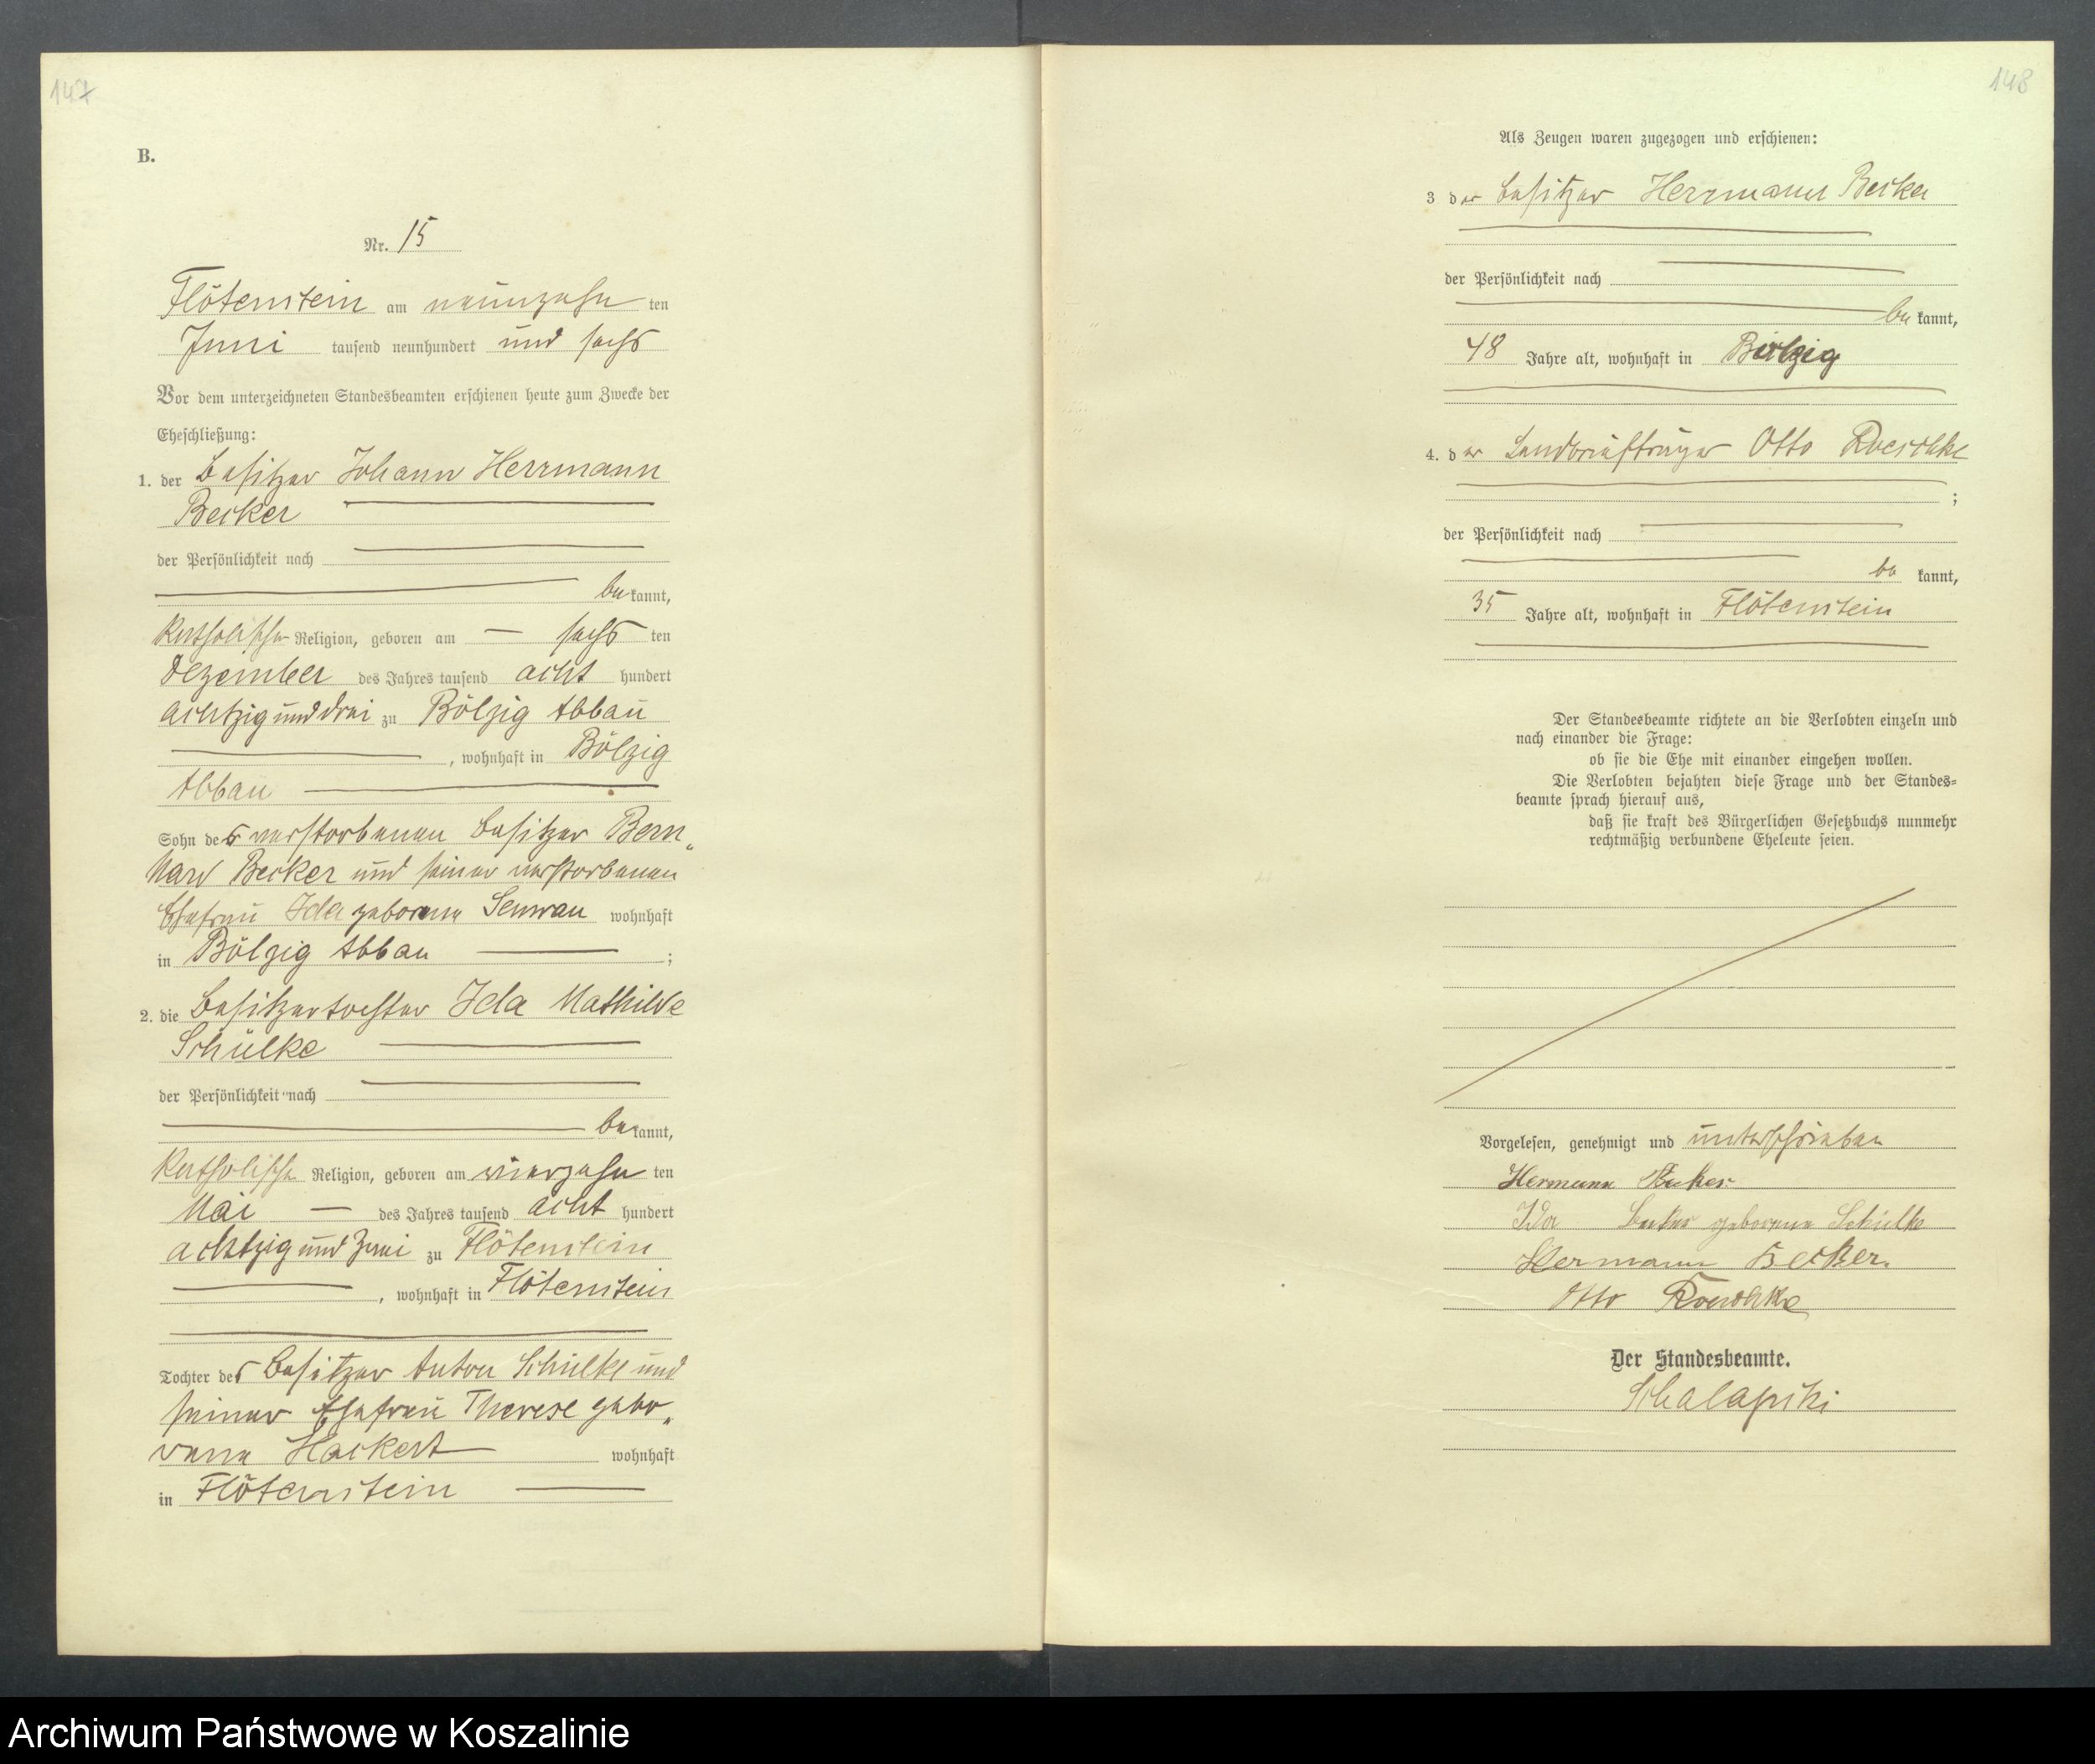 147
B.
Nr. 15
Flötenstein am neunzehn ten
Juni tausend neunhundert und sechs
Vor dem unterzeichneten Standesbeamten erschienen heute zum Zwecke der
Eheschließung:
1. der Besitzer Johann Herrmann
Becker
der Persönlichkeit nach
be kannt,
katholischer Religion, geboren am sechs ten
Dezember des Jahres tausend acht hundert
achtzig und drei zu Bölzig Abbau
, wohnhaft in Bölzig
Abbau
Sohn des verstorbenen Besitzer Bern„
hard Becker und seiner verstorbenen
Ehefrau Ida geborene wohnhaft
in Bölzig Abbau ;
2. die Besitzertochter Ida Mathilde
Schülke
der Persönlichkeit nach
be kannt,
katholischer Religion, geboren am vierzehn ten
Mai des Jahres tausend acht hundert
achtzig und zwei zu Flötenstein
, wohnhaft in Flötenstein
Tochter des Besitzer Anton Schülke und
seiner Ehefrau Therese gebo„
rene Hackert wohnhaft
in Flötenstein
148
Als Zeugen waren zugezogen und erschienen:
3 der Besitzer Herrmann Becker
der Persönlichkeit nach
be kannt,
48 Jahre alt, wohnhaft in Bölzig
4. der Landbriefträger Otto Roeschke
;
der Persönlichkeit nach
be kannt,
35 Jahre alt, wohnhaft in Flötenstein
Der Standesbeamte richtete an die Verlobten einzeln und
nach einander die Frage:
ob sie die Ehe mit einander eingehen wollen.
Die Verlobten bejahten diese Frage und der Standes=
beamte sprach hierauf aus,
daß sie kraft des Bürgerlichen Gesetzbuchs nunmehr
rechtmäßig verbundene Eheleute seien.
Vorgelesen, genehmigt und unterschrieben
Hermann Becker
Ida Becker geborene Schülke
Hermann Becker.
Otto Roeschke
Der Standesbeamte.
Schalapski
Archiwum Państwowe w Koszalinie